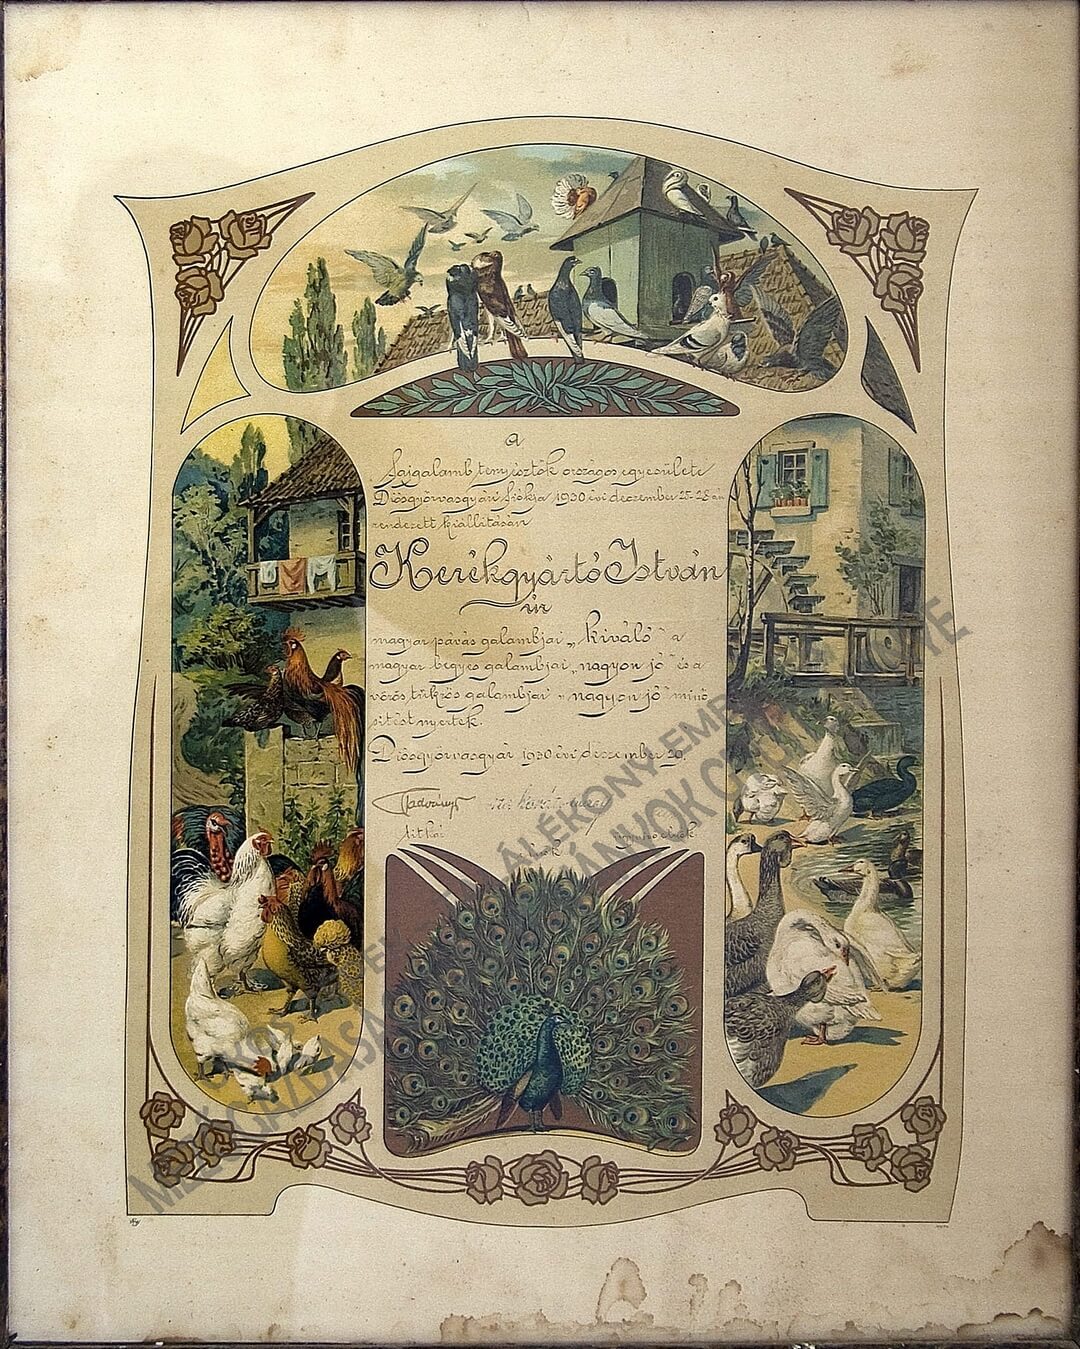 a
Fajgalamb tenyésztők országos egyesülete
Diósgyőrvasgyári fiókja 1930 évi dezember 25-28 án
rendezett kiállításán
Kerékgyártó István
úr
magyar pávás galambjai „kiváló" a
magyar begyes galambjai „nagyon jó" és a
vörös tükrös galambjai „nagyon jó" minő
sitést nyertek.
Diósgyőrvasgyár 1930 évi dezember 29.
titkár ügyvezető elnök